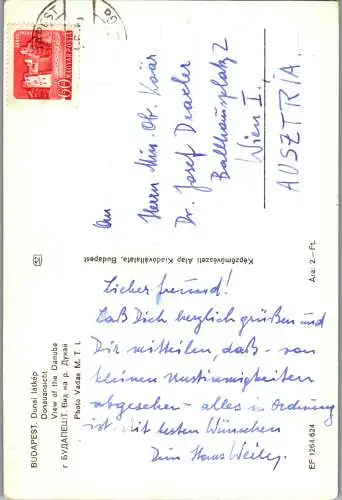 BUDAPEST. Dunai látkép
Donauansicht
View of the Danube
г БУДАПЕШТ. Вид на р. Дунай
Photo Vadas M. T. I.
Képzőművészeti Alap Kiadóvállalata, Budapest
Ára: 2.– Ft.
EF 1264/624
60
MAGYAR POSTA
An
Herrn Min. Ob. Koär
Dr. Josef Draxler
Ballhausplatz 2
Wien I.
AUSZTRIA
Lieber Freund!
Laß Dich herzlich grüßen und
Dir mitteilen, daß – von
kleinen Unstimmigkeiten
abgesehen – alles in Ordnung
ist. Mit besten Wünschen
Dein Hans